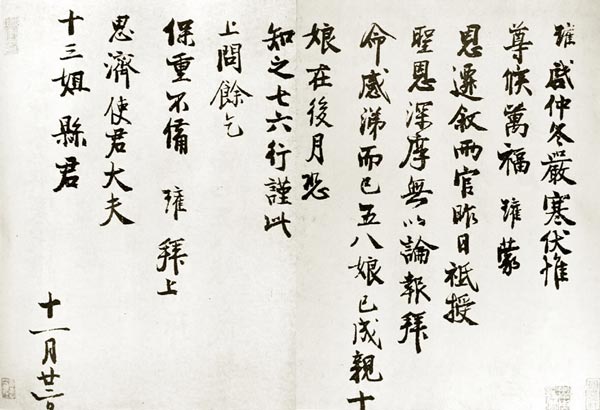 瓘啓仲冬嚴寒伏惟
尊候萬福瓘蒙
恩遷敘兩官昨日祗授
聖恩深摩無以論報拜
命感涕而已五八娘已成親十
娘在後月恐
知之七六行謹此
上問餘乞
保重不備 瓘 拜上
恩濟使君大夫
十三姐縣君
十一月廿二日